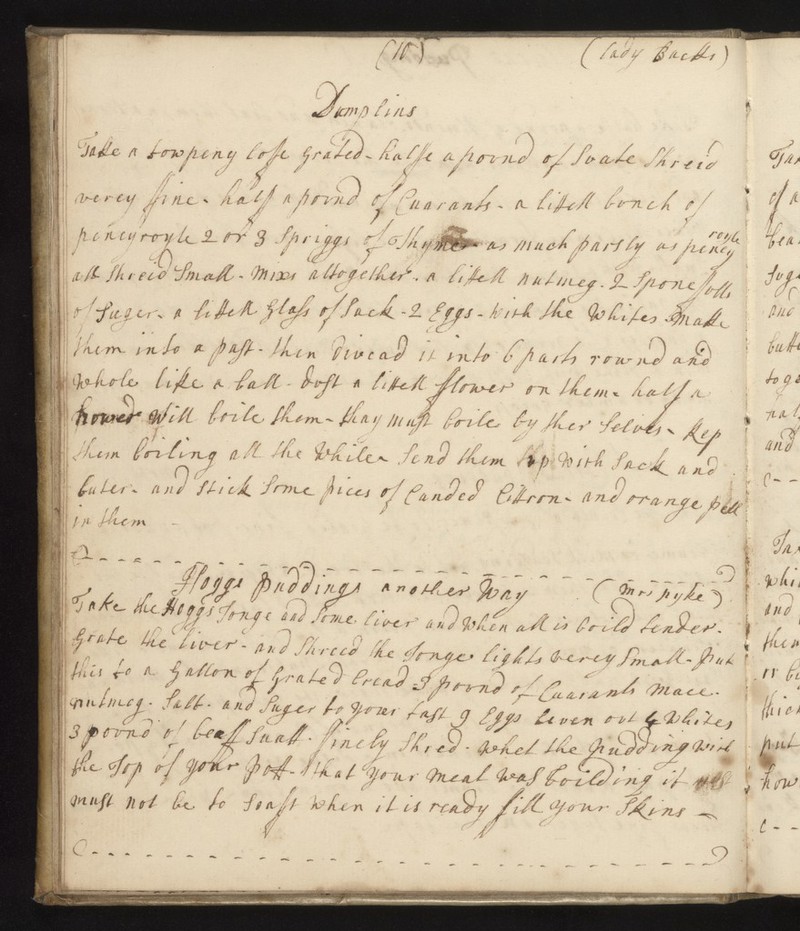 (10) (Lady Backs)
Dumplins
Take a towpeny lofe grated - halfe a pound of Suate Shreid
verey fine - half a pound of Cuarants - a littell bunch of
peneyroyle 2 or 3 Spriggs of Thyme - as much parsly as peney royle
all Shreid Small - mixs altogether - a littell nutmeg - 2 Spone fulls
of Suger - a littell Glass of Sack - 2 Eggs - with the Whites - Make
them into a past - then divead it into 6 parts rownd and
whole like a ball - dost a littell flower on them - half a
hower will boile them - thay must boile by ther Selves - kep
them boiling all the While - Send them up with Sack and
buter - and Stick Some pices of Canded Citron - and orange pell
in them -
Hoggs puddings another Way (Mrs pyke)
Take the Hoggs Tonge and Some liver and when all is boild tender -
Grate the liver - and Shreed the Tonge lights verey Small - put
this to a Gallon of Grated bread 3 pound of Cuarants mace -
nutmeg - Salt - and Suger to your tast 9 Eggs leven out 4 Whites
3 pound of beaff Suatt - finely Shred - whet the pudding with
the Top of your Pott - that your meat was boilding in
must not be to Soaft when it is ready fill your Skins -